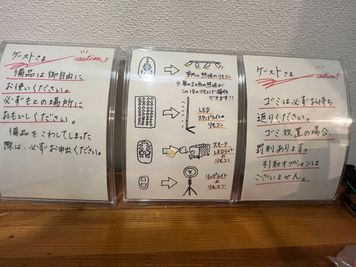 ゲストさま
caution!!
備品は御自由に
お使いください。
必ずもとの場所に
おもどしください。
備品をこわしてしまった
際は、必ずお申出ください。
室内の照明のリモコン
LED
スタンドライトの
リモコン
スモーク
LEDライト
リモコン
リングライトの
リモコン
ゲストさま
caution!!
ゴミは必ずお持ち
返りください。
ゴミ放置の場合、
罰則あります。
引取オプションは
ございません。